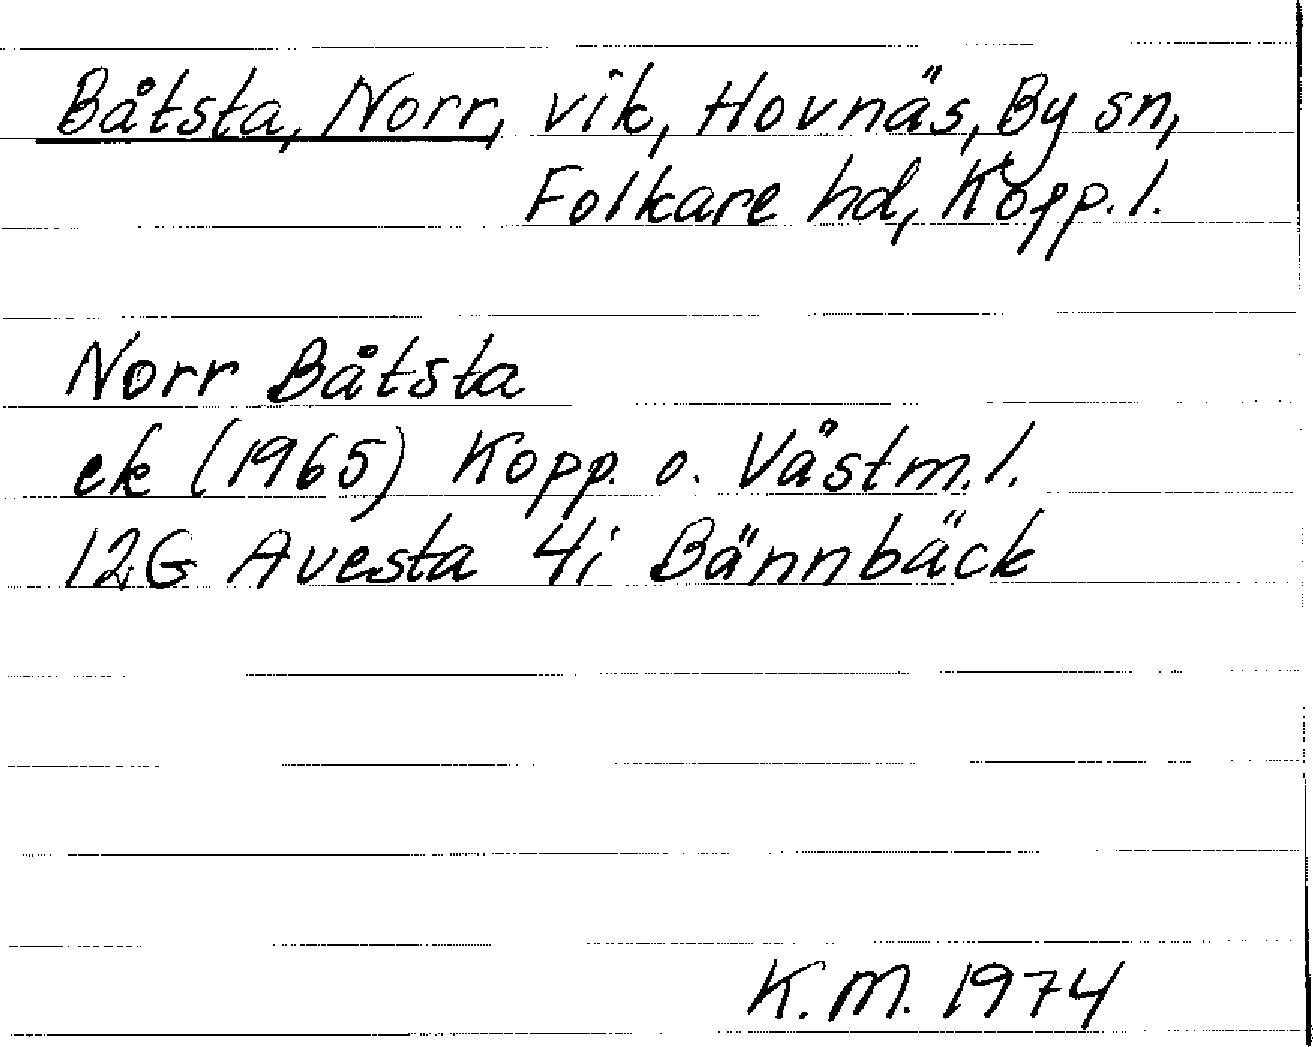 Båtsta, Norr, vik, Hovnäs, By sn,
Folkare hd, Kopp. l.
Norr Båtsta
ek (1965) Kopp. o. Västm. l.
12G Avesta 4i Bännbäck
K.M. 1974